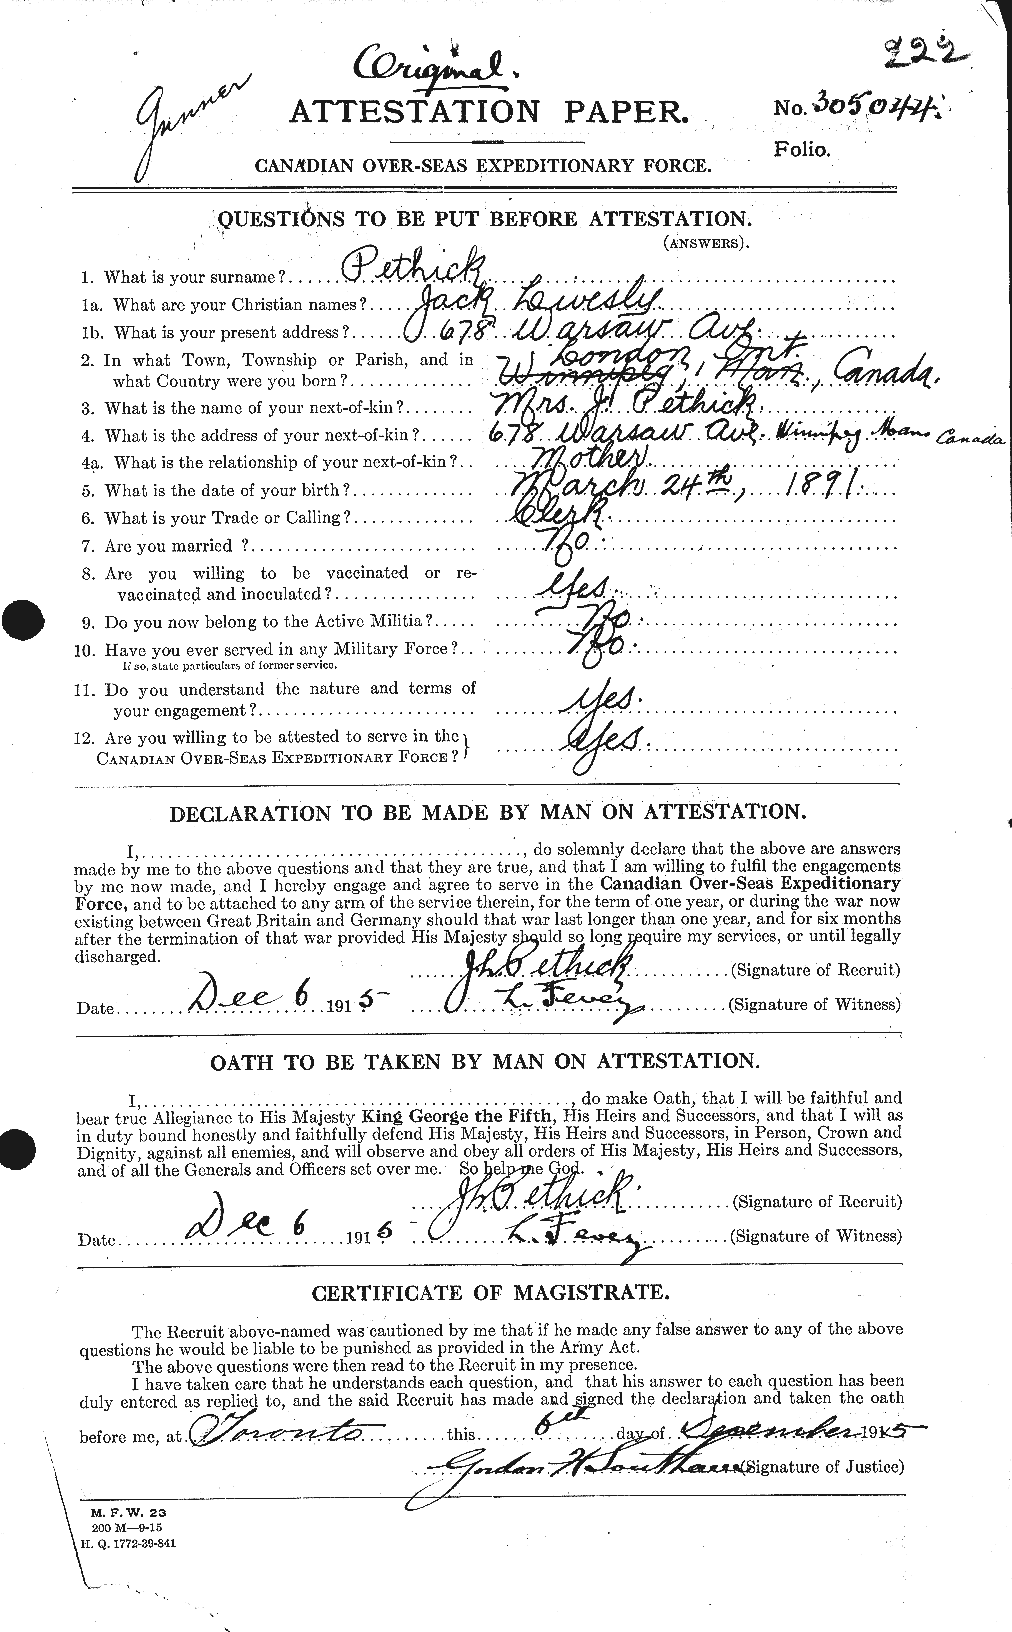 222
Original.
Gunner
ATTESTATION PAPER.
No. 305044.
Folio.
CANADIAN OVER-SEAS EXPEDITIONARY FORCE.
QUESTIONS TO BE PUT BEFORE ATTESTATION.
(ANSWERS).
1. What is your surname?...... Pethick
1a. What are your Christian names?.... Jack Lwesly
1b. What is your present address?...... 678 Warsaw Ave.
2. In what Town, Township or Parish, and in London, Ont.
what Country were you born?............. Winnipeg, Man., Canada.
3. What is the name of your next-of-kin?........ Mrs. J. Pethick.
4. What is the address of your next-of-kin?...... 678 Warsaw Ave. Winnipeg Man Canada
4a. What is the relationship of your next-of-kin?.. Mother
5. What is the date of your birth?............. March 24th, 1891.
6. What is your Trade or Calling?............. Clerk.
7. Are you married ?......................... No.
8. Are you willing to be vaccinated or re-
vaccinated and inoculated?................ Yes.
9. Do you now belong to the Active Militia?..... No.
10. Have you ever served in any Military Force?.. No.
If so, state particulars of former service.
11. Do you understand the nature and terms of
your engagement?........................ Yes.
12. Are you willing to be attested to serve in the
CANADIAN OVER-SEAS EXPEDITIONARY FORCE? Yes.
DECLARATION TO BE MADE BY MAN ON ATTESTATION.
I,..........................................., do solemnly declare that the above are answers
made by me to the above questions and that they are true, and that I am willing to fulfil the engagements
by me now made, and I hereby engage and agree to serve in the Canadian Over-Seas Expeditionary
Force, and to be attached to any arm of the service therein, for the term of one year, or during the war now
existing between Great Britain and Germany should that war last longer than one year, and for six months
after the termination of that war provided His Majesty should so long require my services, or until legally
discharged.
J L Pethick (Signature of Recruit)
Date Dec 6 1915 L. Fevey (Signature of Witness)
OATH TO BE TAKEN BY MAN ON ATTESTATION.
I,................................................, do make Oath, that I will be faithful and
bear true Allegiance to His Majesty King George the Fifth, His Heirs and Successors, and that I will as
in duty bound honestly and faithfully defend His Majesty, His Heirs and Successors, in Person, Crown and
Dignity, against all enemies, and will observe and obey all orders of His Majesty, His Heirs and Successors,
and of all the Generals and Officers set over me. So help me God.
J L Pethick. (Signature of Recruit)
Date Dec 6 1915 L. Fevey (Signature of Witness)
CERTIFICATE OF MAGISTRATE.
The Recruit above-named was cautioned by me that if he made any false answer to any of the above
questions he would be liable to be punished as provided in the Army Act.
The above questions were then read to the Recruit in my presence.
I have taken care that he understands each question, and that his answer to each question has been
duly entered as replied to, and the said Recruit has made and signed the declaration and taken the oath
before me, at Toronto this 6th day of December 1915
Gordon H Southam (Signature of Justice)
M. F. W. 23
200 M—9-15
H. Q. 1772-39-841